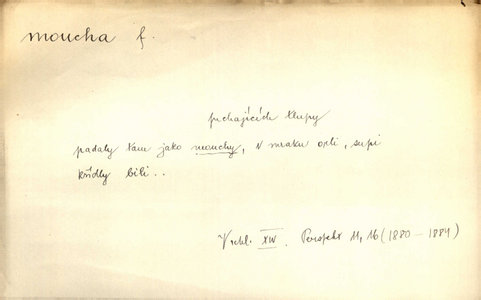 moucha f.
prchajících tlupy
padaly tam jako mouchy, v mraku orli, supi
křídly bili..
Vrchl. XIV. Perspekt 11, 16 (1880–1884)